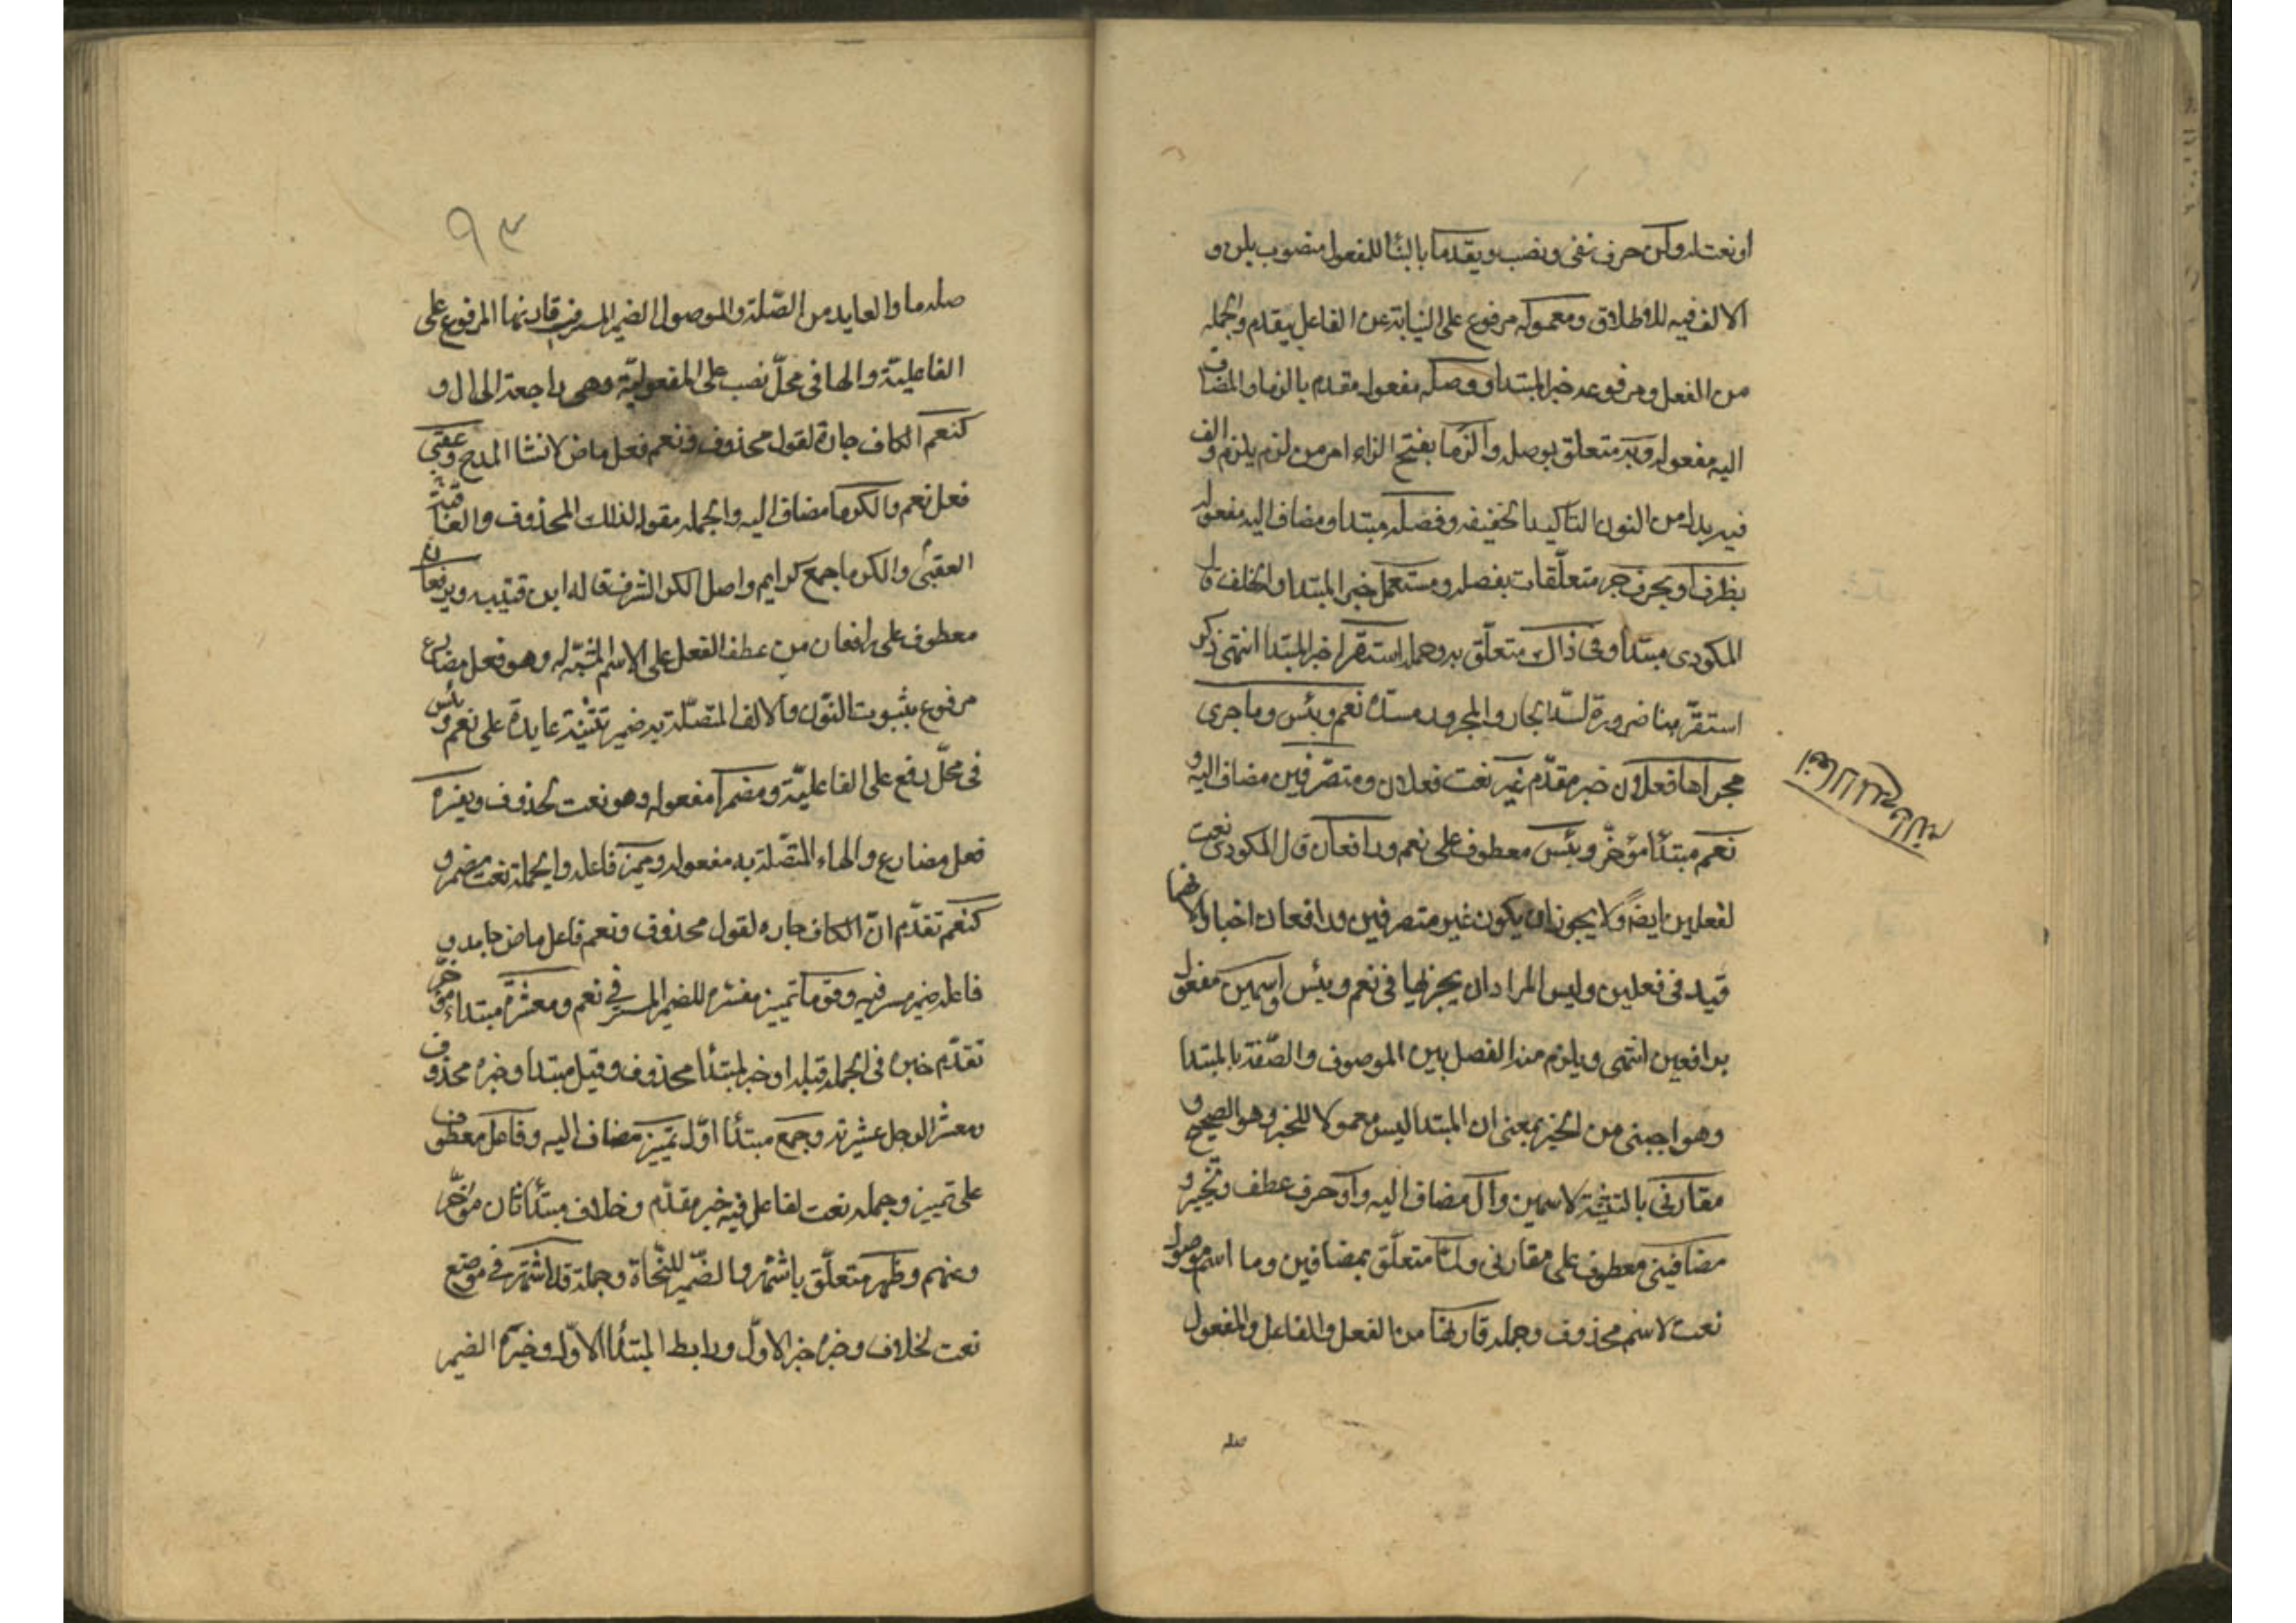 او نعت له ولن حرف نفى ونصب ويقدما بالبنا للمفعول منصوب بلن و
الالف فيه للاطلاق ومعموله مرفوع على النيابة عن الفاعل بيقدم والجمله
من الفعل ومرفوعه خبر المبتدا ووصله مفعول مقدم بالزما والمضاف
اليه مفعوله وبه متعلق بوصله والزما بفتح الزاء امر من لزم يلزم والف
فيه بدل من النون التاكيد الخفيفه وفصله مبتدا ومضاف اليه مفعوله
بظرف او بحرف جر متعلقات بفصله ومستعمل خبر المبتدا والخلف قال
المكودى مبتدا وفى ذاك متعلق به وجمله استقر خبر المبتدا انتهى ذكر
استقر هنا ضرورة لسد الجار والمجرور مسده نعم وبئس وما جرى
مجراها فعلان خبر مقدم غير نعت فعلان ومتصرفين مضاف اليه و
نعم مبتدأ مؤخر وبئس معطوف على نعم ورافعان قال المكودى نعت
لفعلين ايضا ولا يجوز ان يكون غير متصرفين ورافعان اخبارا لانهما
قيد فى فعلين وليس المراد ان يخبر بها فى نعم وبئس واسمين مفعول
برافعين انتهى ويلزم منه الفصل بين الموصوف والصفة بالمبتدا
وهو اجنبى من الخبر بمعنى ان المبتدا ليس معمولا للخبر وهو الصحيح و
مقارنى بالتثنية لاسمين وال مضاف اليه واو حرف عطف وتخيير و
مضافين معطوف على مقارنى ولما متعلق بمضافين وما اسم موصول
نعت لاسم محذوف وجمله قارنها من الفعل والفاعل والمفعول
صله
نعم وبئس
٩٣
صله ما والعايد من الصلة والموصول الضمير المستتر فى قارنها المرفوع على
الفاعلية والها فى محل نصب على المفعولية وهى راجعة الى ال و
كنعم الكاف جارة لقول محذوف ونعم فعل ماض لانشا المدح وعقبى
فعل نعم والكرما مضاف اليه والجمله مقول لذلك المحذوف والعاقبة
العقبى والكرما جمع كرايم واصل الكرم الشرف قاله ابن قتيبه ويرفعان
معطوف على رافعان من عطف الفعل على الاسم المشبه له وهو فعل مضارع
مرفوع بثبوت النون والالف المتصلة به ضمير تثنية عايدة على نعم وبئس
فى محل رفع على الفاعلية ومضمرا مفعول وهو نعت لمحذوف ويفسره
فعل مضارع والهاء المتصلة به مفعوله ومميز فاعله والجملة نعت مضمر و
كنعم تقدم ان الكاف جاره لقول محذوف ونعم فاعل ماض جامد و
فاعله ضمير مستتر فيه وقوما تمييز مفسره للضمير المستتر فى نعم ومعشره مبتداء مؤخر
تقدم خبره فى الجملة قبله او خبر لمبتدأ محذوف وقيل مبتدا وخبره محذوف
ومعشر الرجل عشيرته وجمع مبتدأ اول تمييز مضاف اليه وفاعل معطوف
على تمييز وجمله نعت لفاعل فيه خبر مقدم وخلاف مبتدأ ثان مؤخر
وعنهم وظهر متعلق باشتهر والضمير للنحاة وجملة قد اشتهر فى موضع
نعت لخلاف وخبره خبر الاول ورابط المبتدأ الاول وخبره الضمير